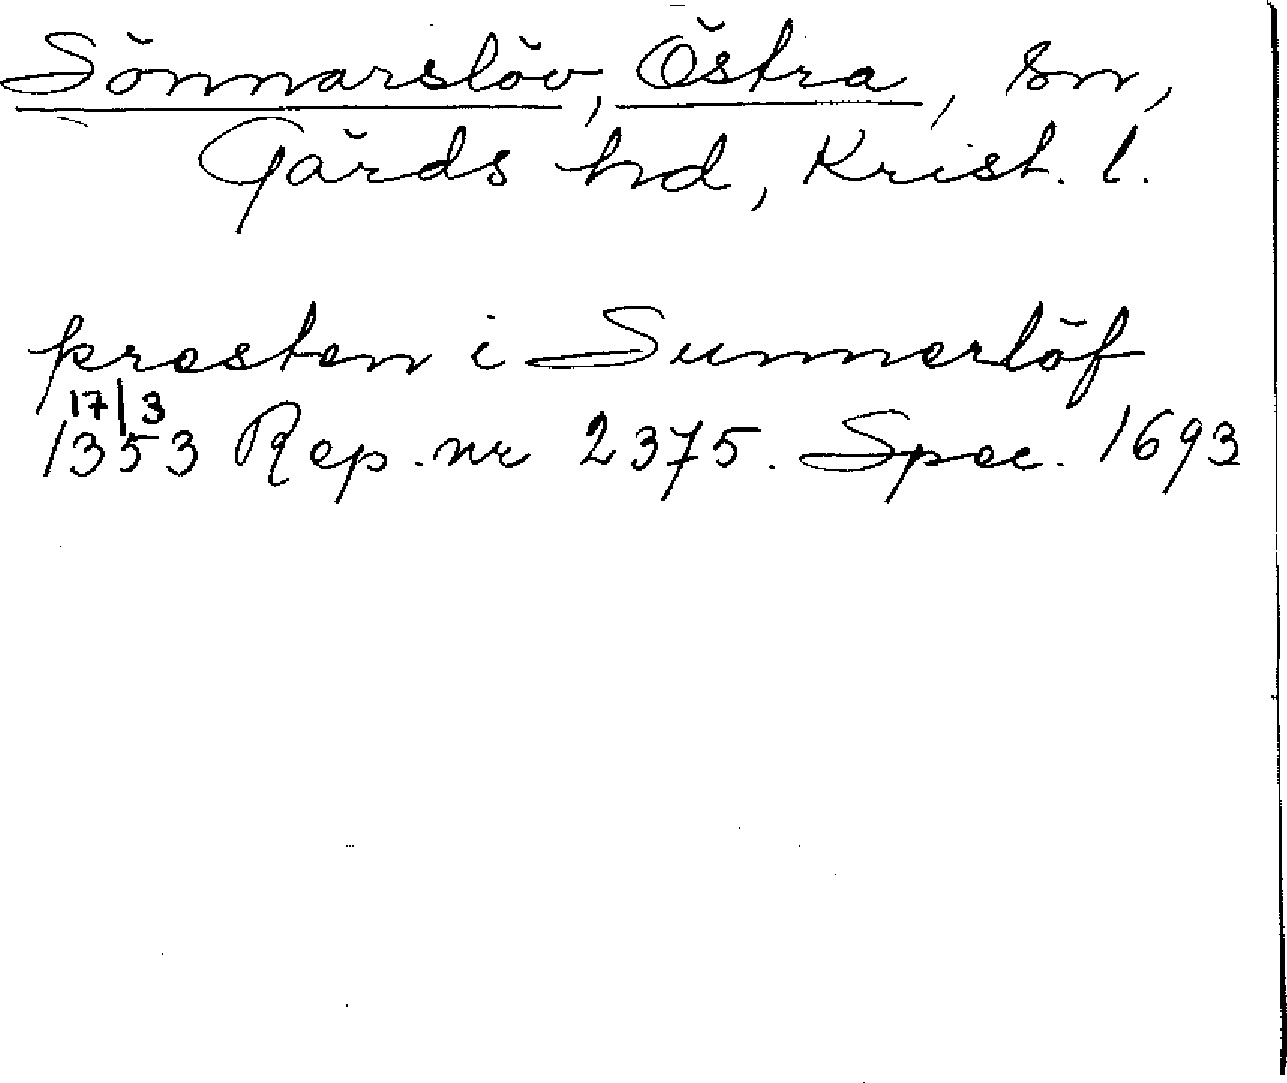 Sönnarslöv, Östra, sn,
Gärds hd, Krist. l.
presten i Sunnerlöf
17/3
1353 Rep. nr 2375. Spec. 1693